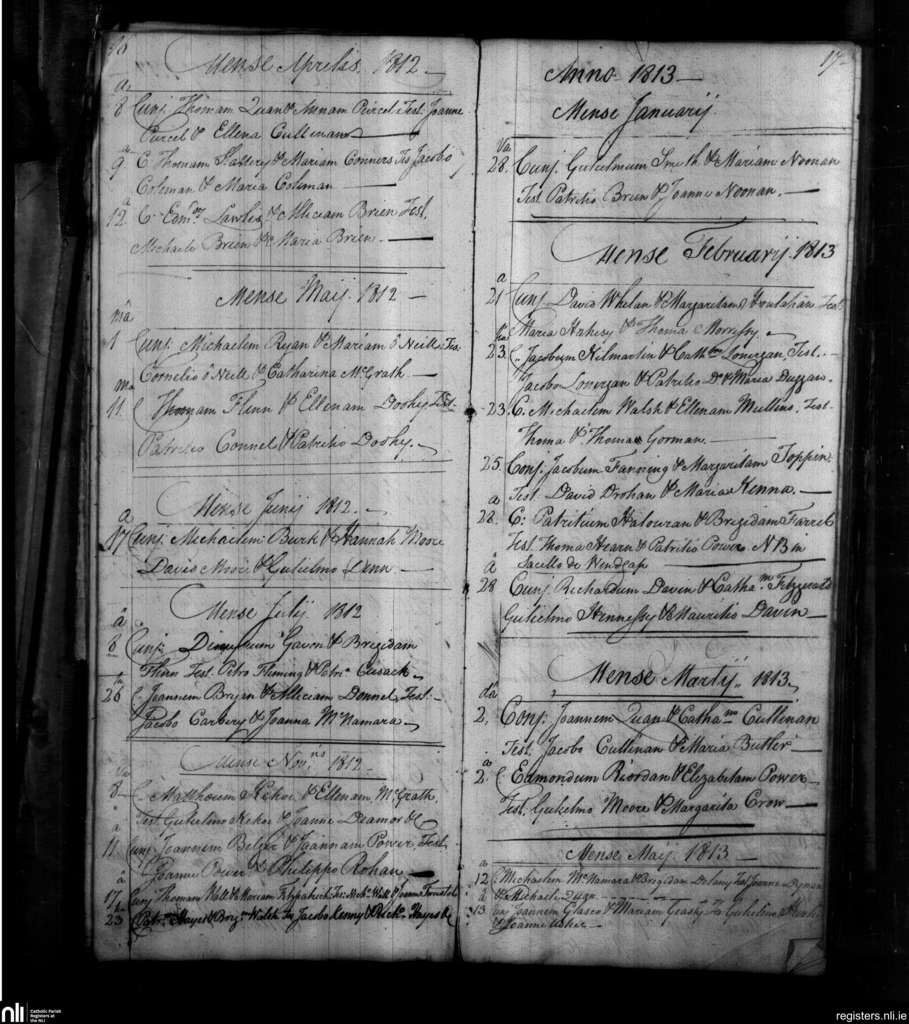 Mense Aprilis 1812
8 Cunj. Thomam Quan & Annam Purcel Test. Joanne
Purcel & Ellena Cullinan
9 C Thomam Slattery & Mariam Conners Tes Jacobo
Coleman & Maria Coleman
12 C. Edm. Lawler & Alliciam Brien Test.
Michaele Brien & Maria Brien
Mense Maij 1812
1 Cunj. Michaelem Ryan & Mariam ô Neill Tes
Cornelio ô Neill & Catharina McGrath
11 C Thomam Flinn & Ellenam Doohy Test
Patritio Connel & Patritio Doohy
Mense Junij 1812
17 Cunj. Michaelem Burk & Hannah Moore
Davis Moore & Gulielmo Denn
Mense Julij 1812
8 Cunj. Gavon & Brigidam
Test. Petro Fleming & Petro Cusack
26 C Joannem Bryan & Alliciam Donnel Test
Jacobo Carbery & Joanna McNamara
Mense Nov.ns 1812
8 C. Matthoeum Kehoe & Ellenam McGrath
Test Gulielmo Kehoe & Joanne
11 Cunj Joannem & Joannam Power, Test
Joanne Power & Philippo Rohan
17 Cunj Thomam Wall & Mariam Fitzpatrick Tes Mich. Wall & Joanna
23 Hayes & Walsh Tes Jacobo Kenny & Hayes
17
Anno 1813
Mense Januarij
28. Cunj. Gulielmum Smith & Mariam Noonan
Test Patritio Brien & Joanne Noonan
Mense Februarij 1813
21 Cunj David Whelan & Margaritam Houlahan Test
Maria Hahesy & Thoma Morrissy
23. C. Jacobum Kilmartin & Cath Lonergan Test.
Jacobo Lonergan & Patritio D & Maria Duggan
23 C. Michaelem Walsh & Ellenam Mullins. Test
Thoma & Thoma Gorman
25 Conj. Jacobum Fanning & Margaritam Toppin
Test. David Drohan & Maria Kenna
28. C: Patritium Halouran & Brigidam Farrel
Test. Thoma Hearn & Patritio Power NB in
Sacello de Windgap
28 Cunj Richardum Davin & Catha.m Fitzgerald
Gulielmo Hennessy & Mauritio Davin
Mense Martij 1813
2. Conj: Joannem Quan & Catha.na Cullinan
Test. Jacobo Cullinan & Maria Butler
2. C Edmondum Riordan & Elizabetam Power
Test. Gulielmo Moore & Margarita Crow
Mense Maij 1813
12 C Michaelem McNamara & Brigidam Delany Test Joanne
& Michaele Quan
13 Cunj Joannem Glasco & Mariam Tes Gulielmo
& Joanne Usher
nli
Catholic Parish
Registers at
the NLI
registers.nli.ie